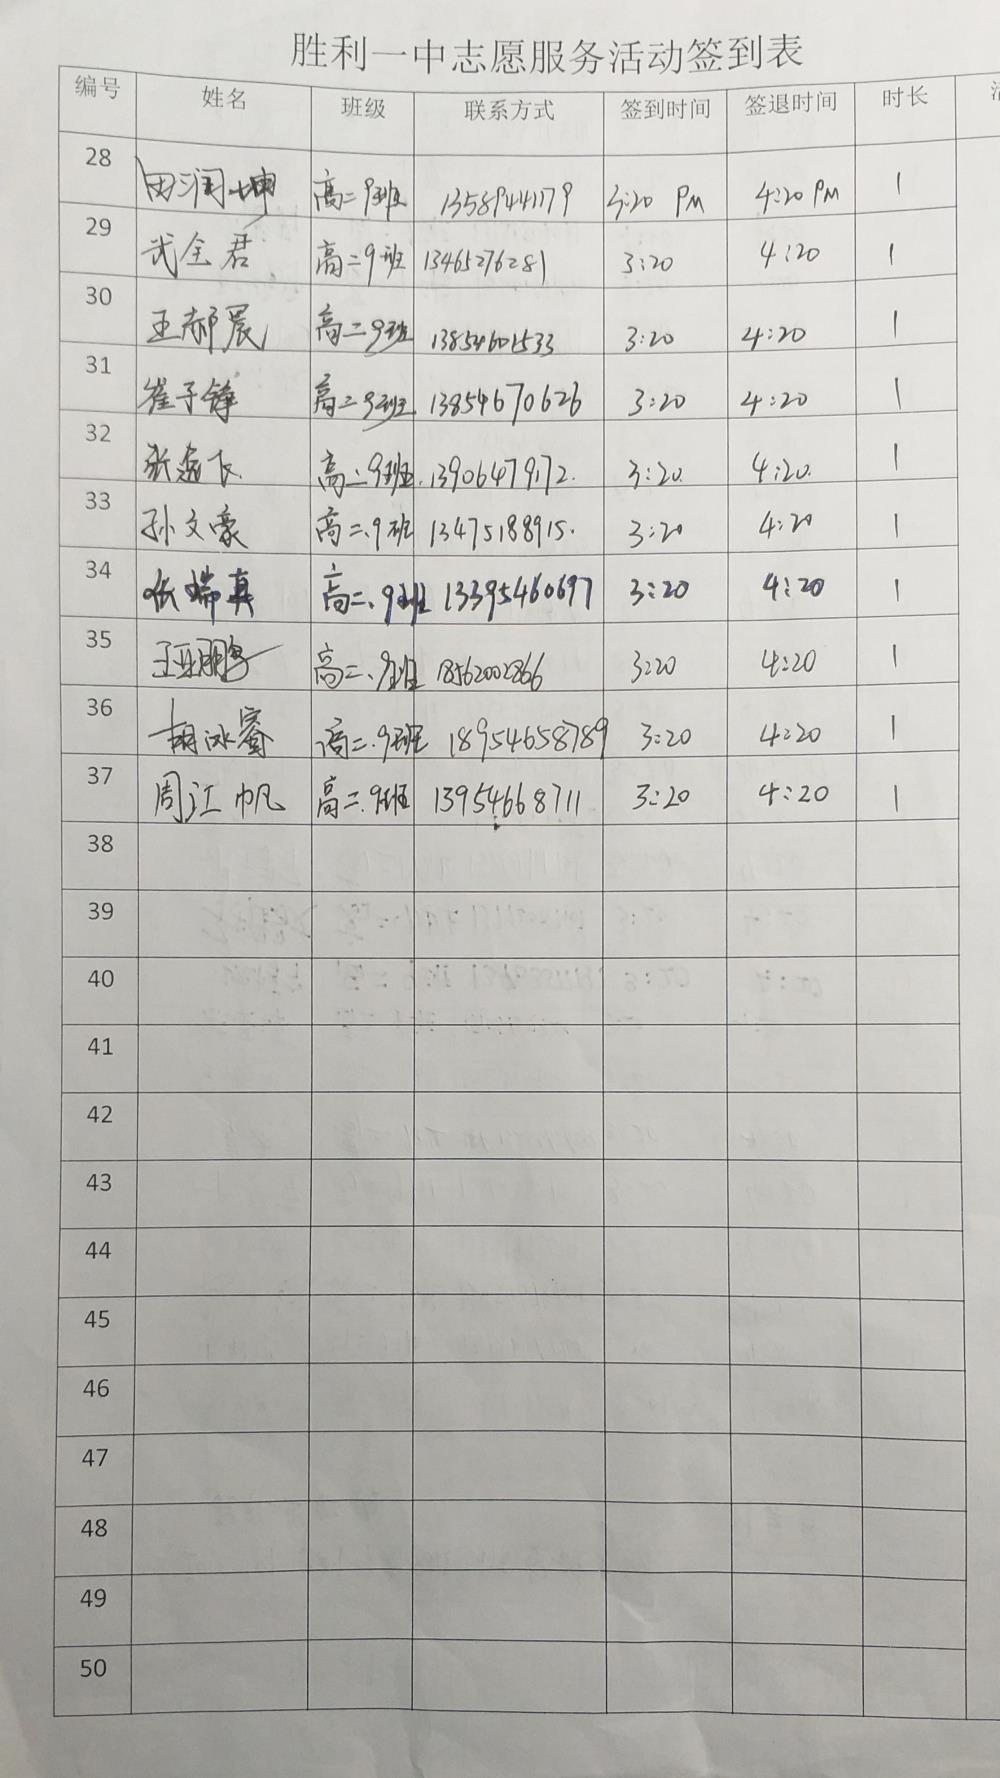 胜利一中志愿服务活动签到表
编号 姓名 班级 联系方式 签到时间 签退时间 时长
28 田润坤 高二9班 13589441179 3:20 PM 4:20 PM 1
29 武全君 高二9班 13465276281 3:20 4:20 1
30 王郝晨 高二9班 13854601533 3:20 4:20 1
31 崔子铮 高二9班 13854670626 3:20 4:20 1
32 张 飞 高二.9班. 13906479172. 3:20. 4:20. 1
33 孙文豪 高二.9班 13475188915. 3:20 4:20 1
34 张瑞真 高二.9班 13395460697 3:20 4:20 1
35 王亚鹏 高二.9班 18562002866 3:20 4:20 1
36 胡冰 高二.9班 18954658789 3:20 4:20 1
37 周江帆 高二.9班 13954668711 3:20 4:20 1
38
39
40
41
42
43
44
45
46
47
48
49
50